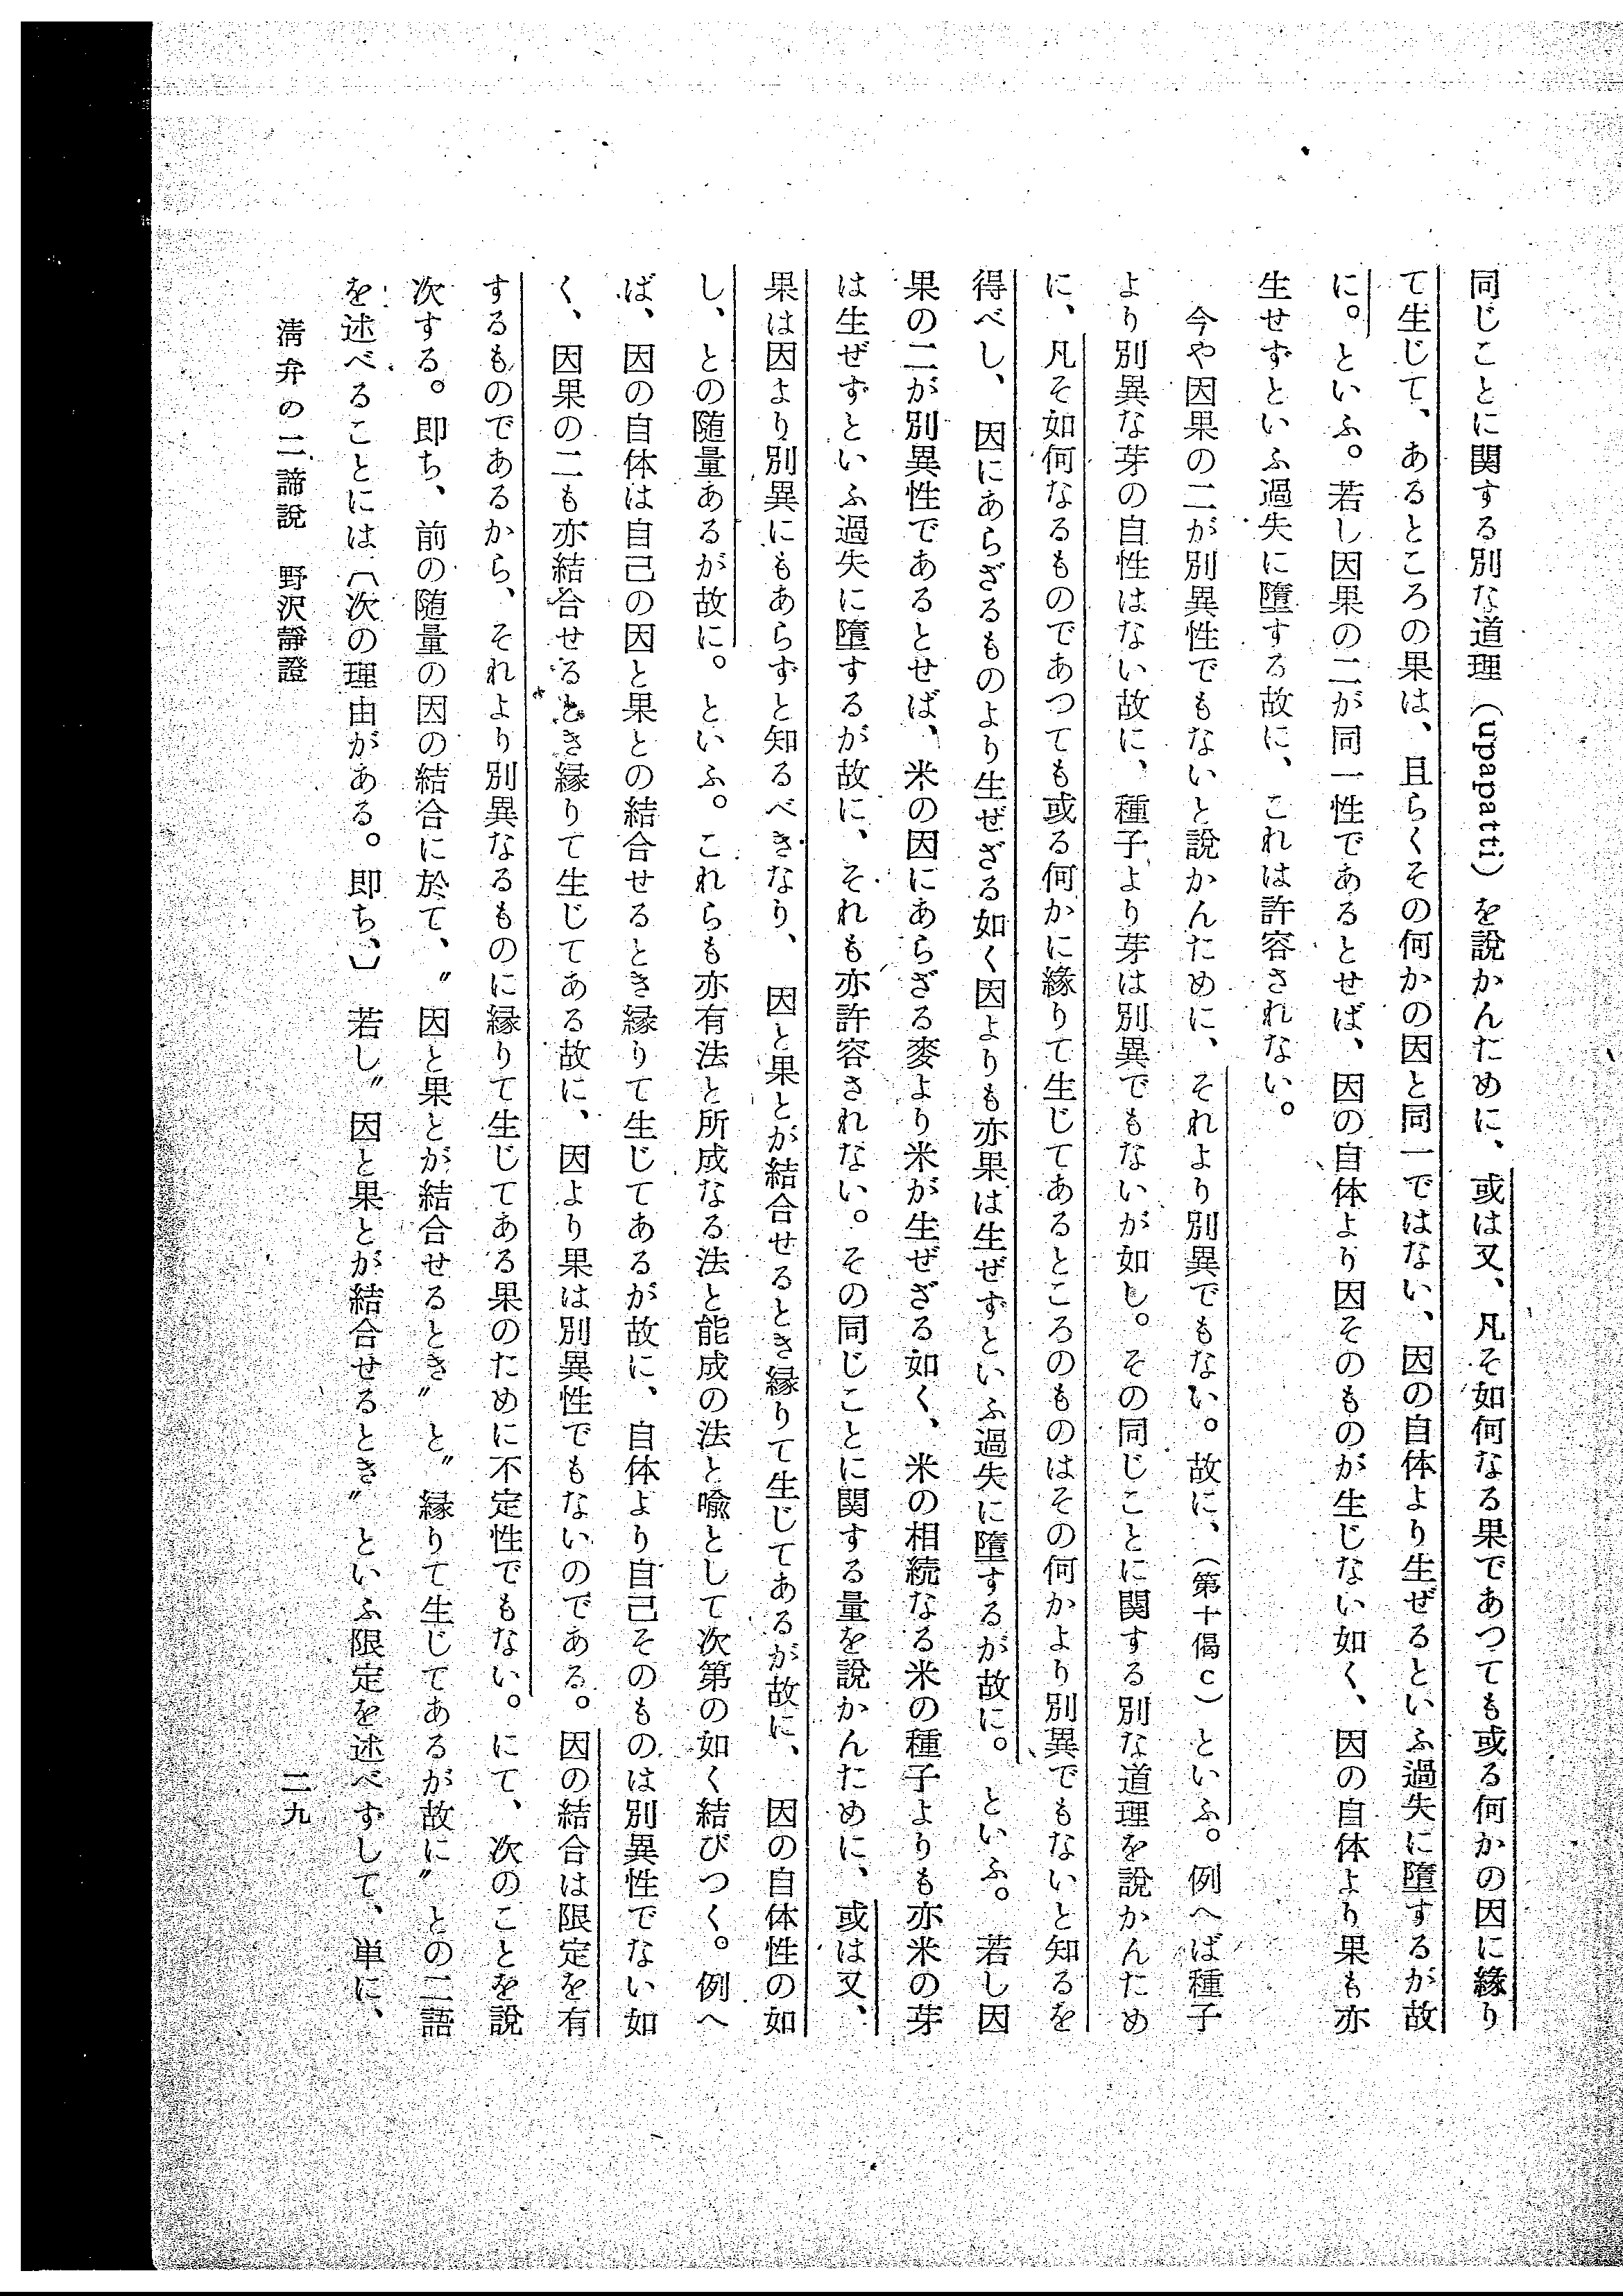 同じことに関する別な道理（upapatti）を説かんために、或は又、凡そ如何なる果であつても或る何かの因に縁り
て生じて、あるところの果は、且らくその何かの因と同一ではない、因の自体より生ぜるといふ過失に墮するが故
に。といふ。若し因果の二が同一性であるとせば、因の自体より因そのものが生じない如く、因の自体より果も亦
生せずといふ過失に墮する故に、これは許容されない。
今や因果の二が別異性でもないと説かんために、それより別異でもない。故に、（第十偈c）といふ。例へば種子
より別異な芽の自性はない故に、種子より芽は別異でもないが如し。その同じことに関する別な道理を説かんため
に、凡そ如何なるものであつても或る何かに縁りて生じてあるところのものはその何かより別異でもないと知るを
得べし、因にあらざるものより生ぜざる如く因よりも亦果は生ぜずといふ過失に墮するが故に。といふ。若し因
果の二が別異性であるとせば、米の因にあらざる麥より米が生ぜざる如く、米の相続なる米の種子よりも亦米の芽
は生ぜずといふ過失に墮するが故に、それも亦許容されない。その同じことに関する量を説かんために、或は又、
果は因より別異にもあらずと知るべきなり、因と果とが結合せるとき縁りて生じてあるが故に、因の自体性の如
し、との随量あるが故に。といふ。これらも亦有法と所成なる法と能成の法と喩として次第の如く結びつく。例へ
ば、因の自体は自己の因と果との結合せるとき縁りて生じてあるが故に、自体より自己そのものは別異性でない如
く、因果の二も亦結合せるとき縁りて生じてある故に、因より果は別異性でもないのである。因の結合は限定を有
するものであるから、それより別異なるものに縁りて生じてある果のために不定性でもない。にて、次のことを説
次する。即ち、前の随量の因の結合に於て、〝因と果とが結合せるとき〟と〝縁りて生じてあるが故に〟との二語
を述べることには〔次の理由がある。即ち、〕若し〝因と果とが結合せるとき〟といふ限定を述べずして、単に、
淸弁の二諦説　野沢靜證
二九